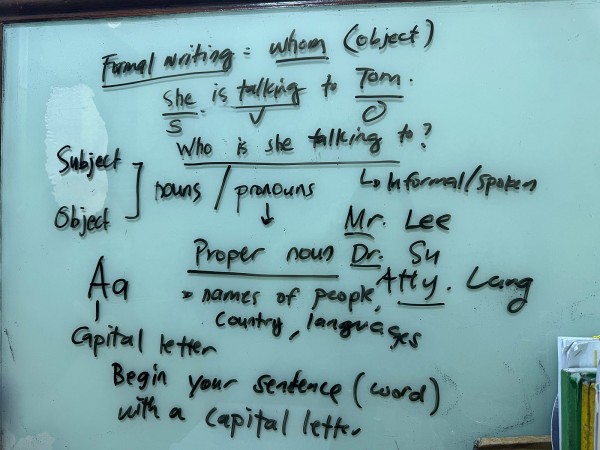 Formal writing = whom (object)
She is talking to Tom.
S V O
Who is she talking to?
↳ Informal/spoken
Subject
Object
] nouns / pronouns
↓
Mr. Lee
Proper noun Dr. Su
Atty. Lang
» names of people,
country, languages
Aa
Capital letter
Begin your sentence (word)
with a capital letter